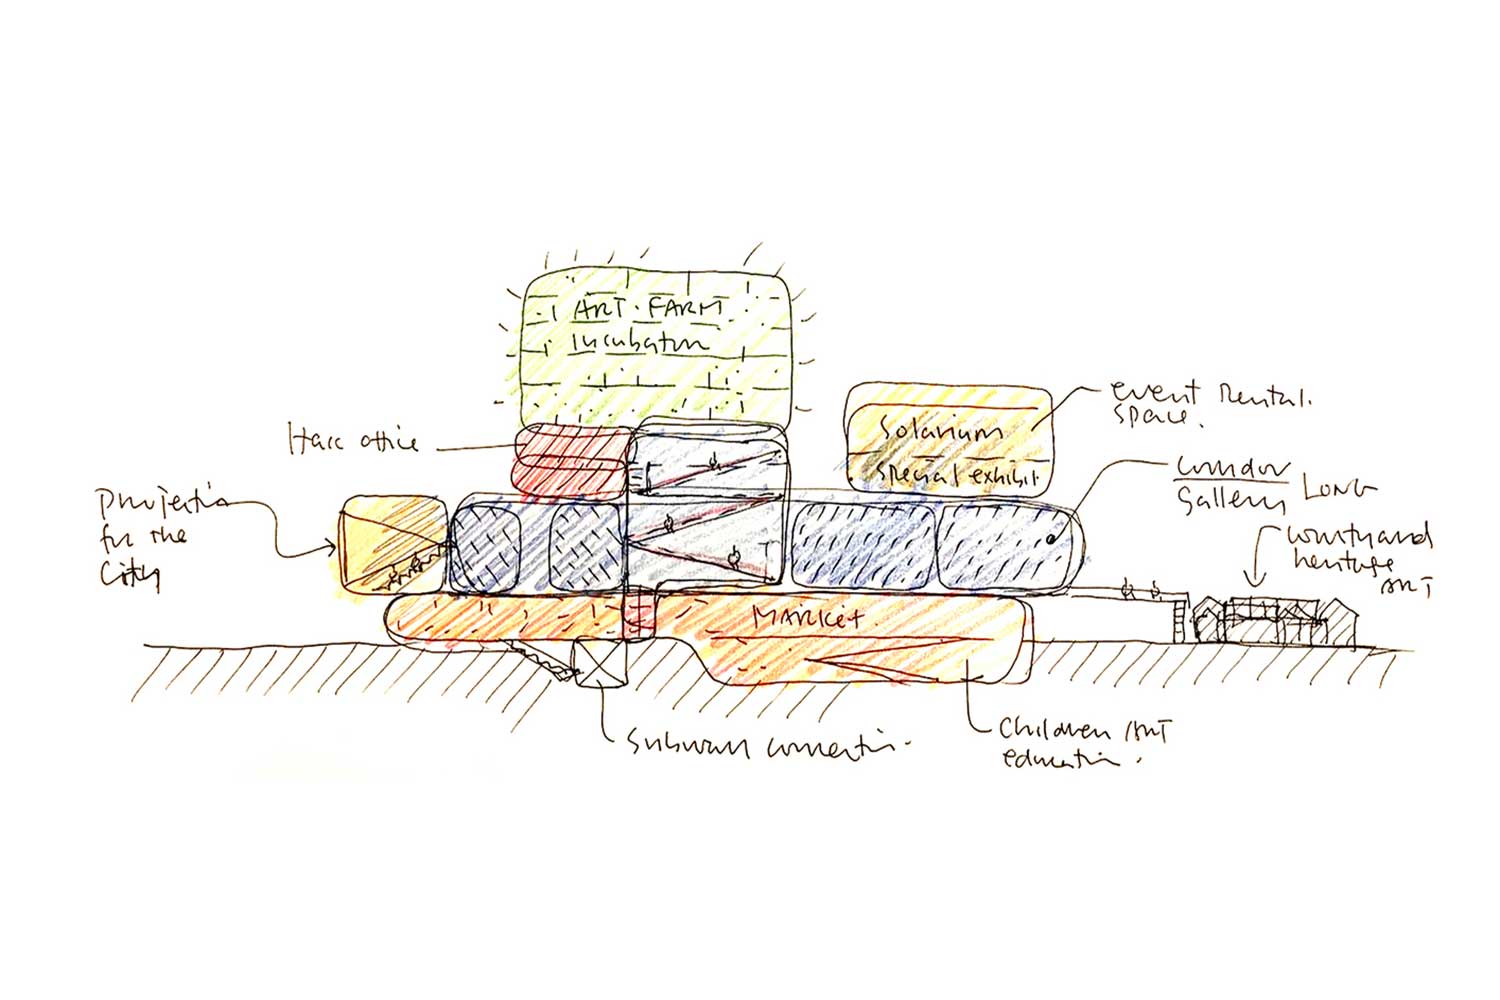 ART · FARM
incubation
event rental.
space.
Solarium
special exhibit
office
corridor
Gallery LONG
projection
for the
City
courtyard
heritage
ART
MARKET.
Subway connection.
Children ART
education.